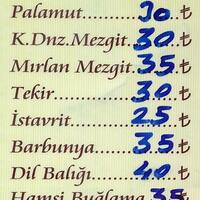 Palamut..............30 ₺
K.Dnz.Mezgit.30 ₺
Mırlan Mezgit.35 ₺
Tekir...............30 ₺
İstavrit............25 ₺
Barbunya........35 ₺
Dil Balığı.........40 ₺
Hamsi Buğlama.35 ₺